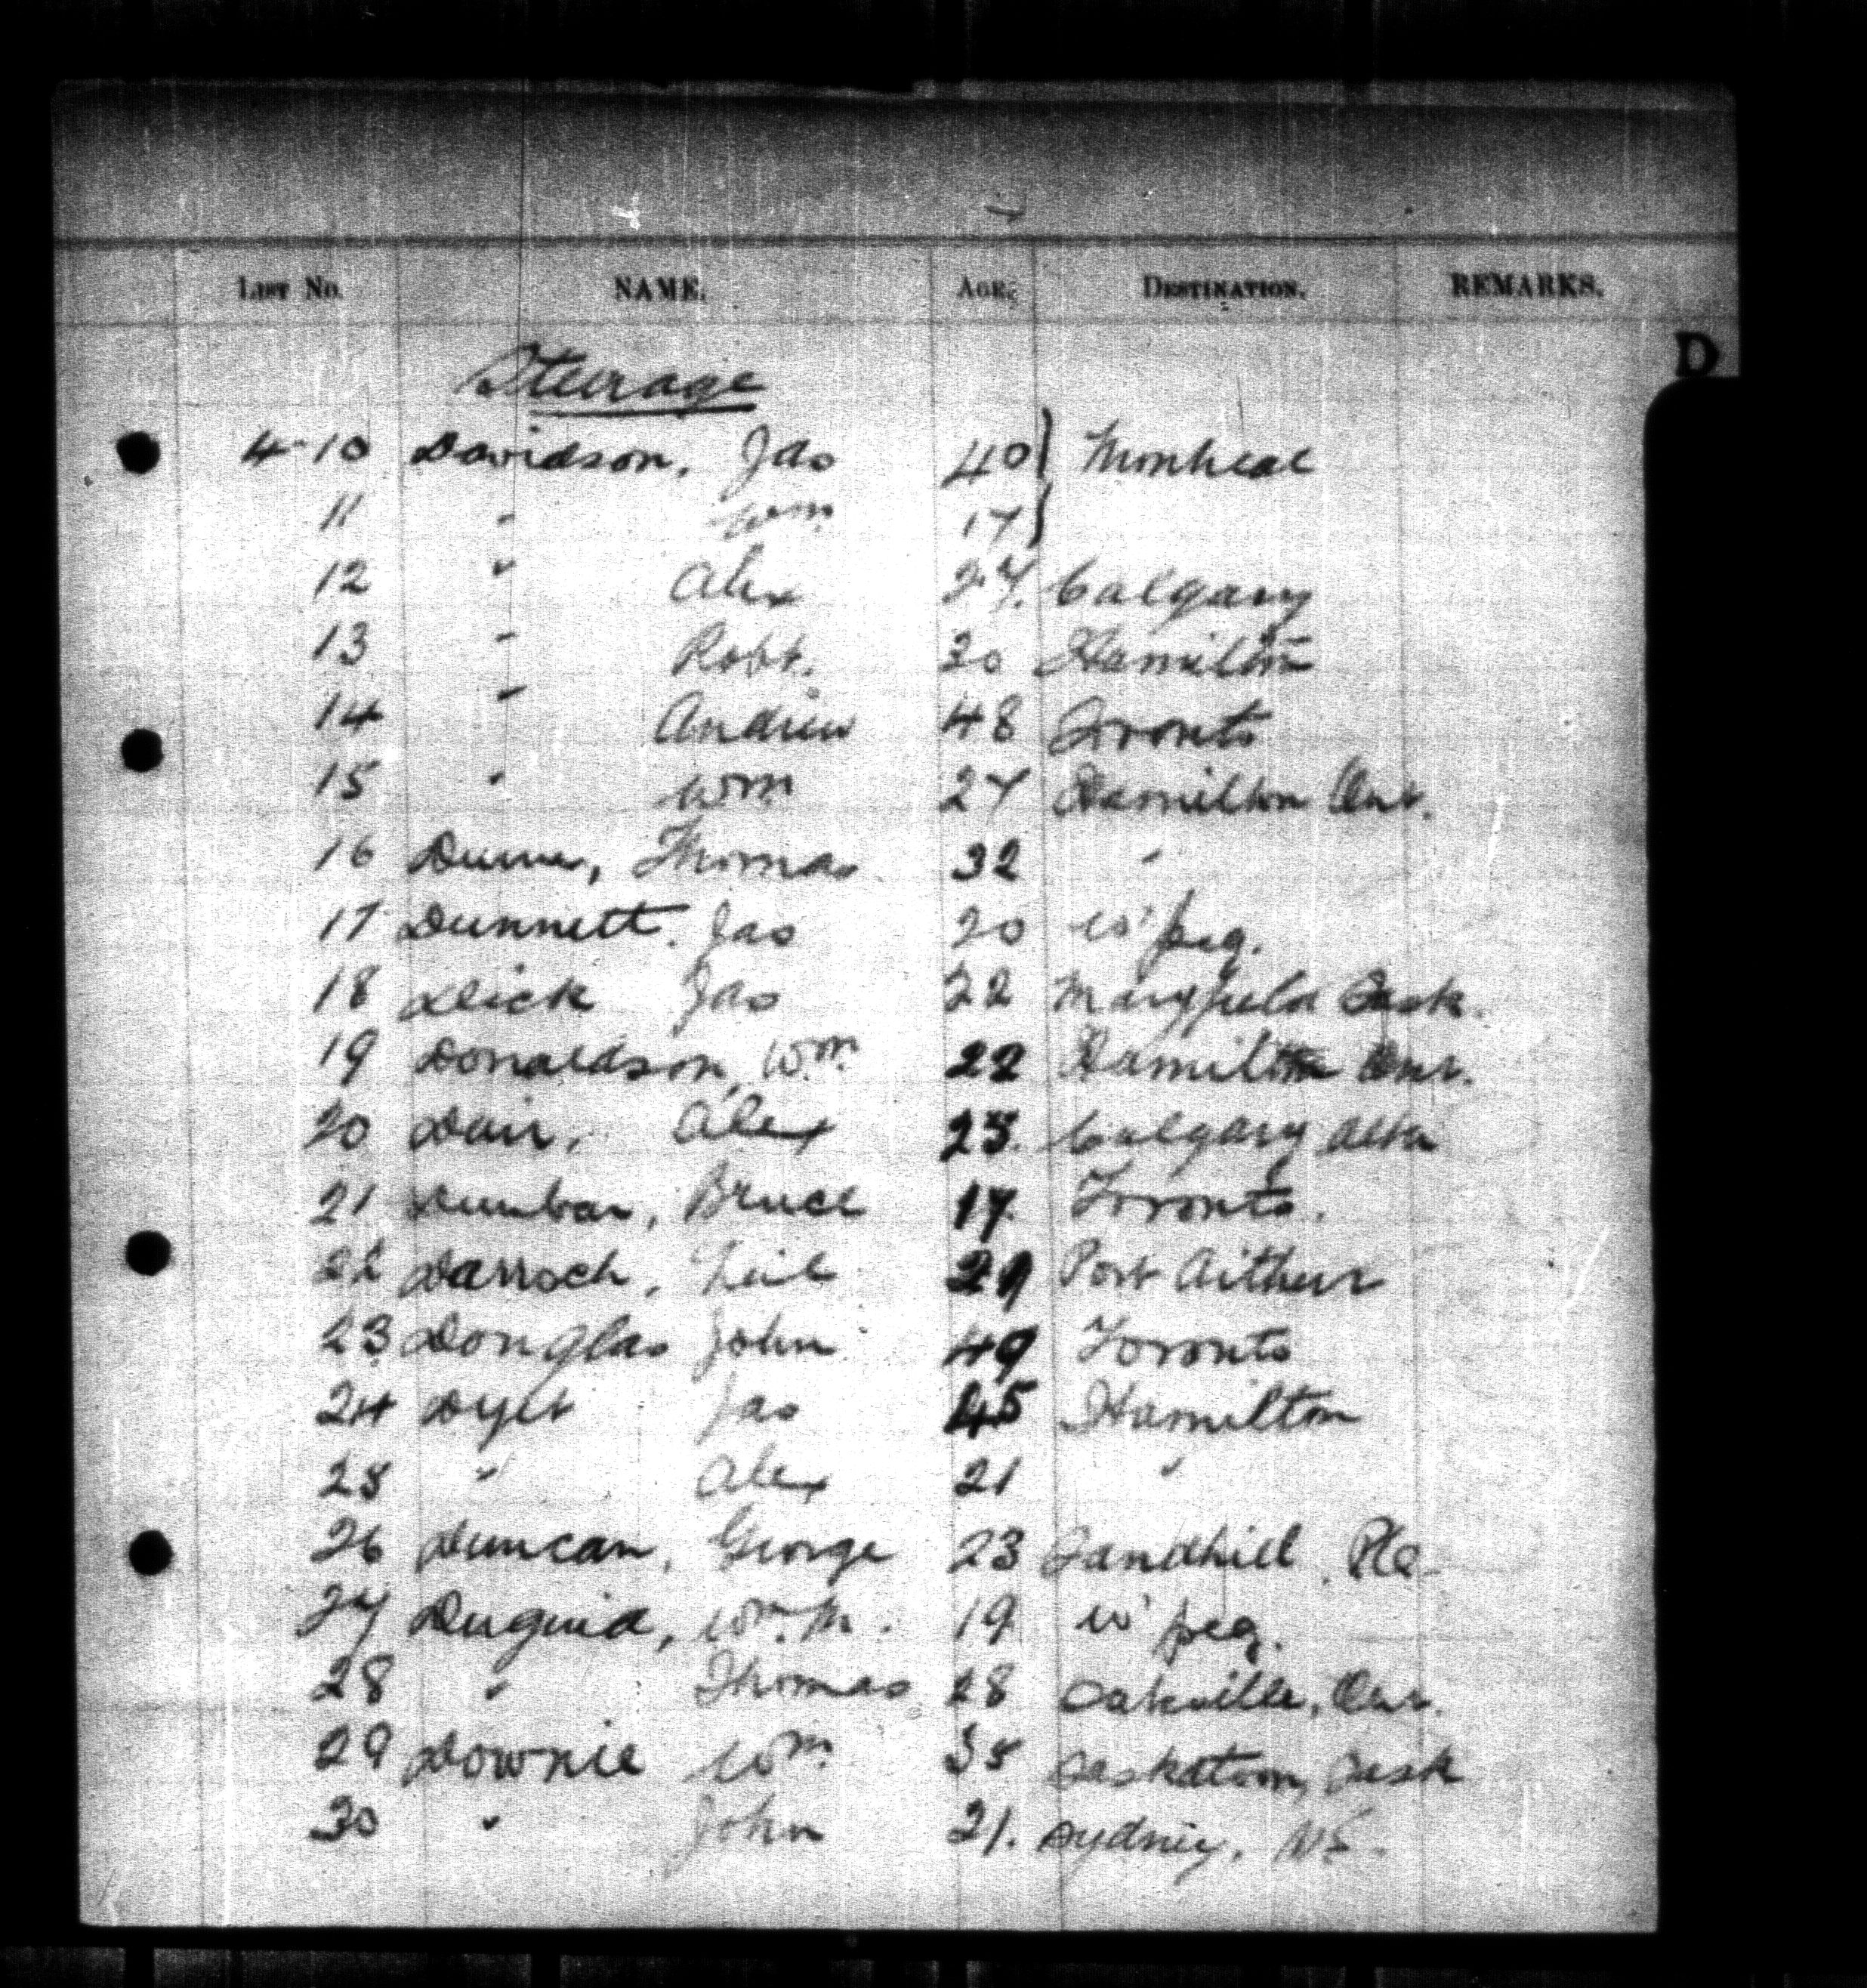 LIST No. NAME. AGE. DESTINATION. REMARKS.
D
Steerage
4-10 Davidson, Jas 40 } Montreal
11 " Wm 17 }
12 " Alex 27. Calgary
13 " Robt. 30 Hamilton
14 " Andrew 48 Toronto
15 " Wm 27 Hamilton Ont.
16 Thomas 32 "
17 Dunnett. Jas 20 W'peg.
18 Dick Jas 22 Maryfield Sask.
19 Donaldson, Wm. 22 Hamilton Ont.
20 Dair, Alex 23. Calgary Alta
21 Dunbar, Bruce 17. Toronto.
22 Darroch, Neil 29 Port Arthur
23 Douglas John 49 Toronto
24 Jas 45 Hamilton
25 " Alex 21 "
26 Duncan, George 23 Sandhill.
27 Duguid, Wm. M. 19 W'peg.
28 " Thomas 28 Oakville, Ont.
29 Downie Wm. 35 Saskatoon, Sask
30 " John 21. Sydney, N.S.